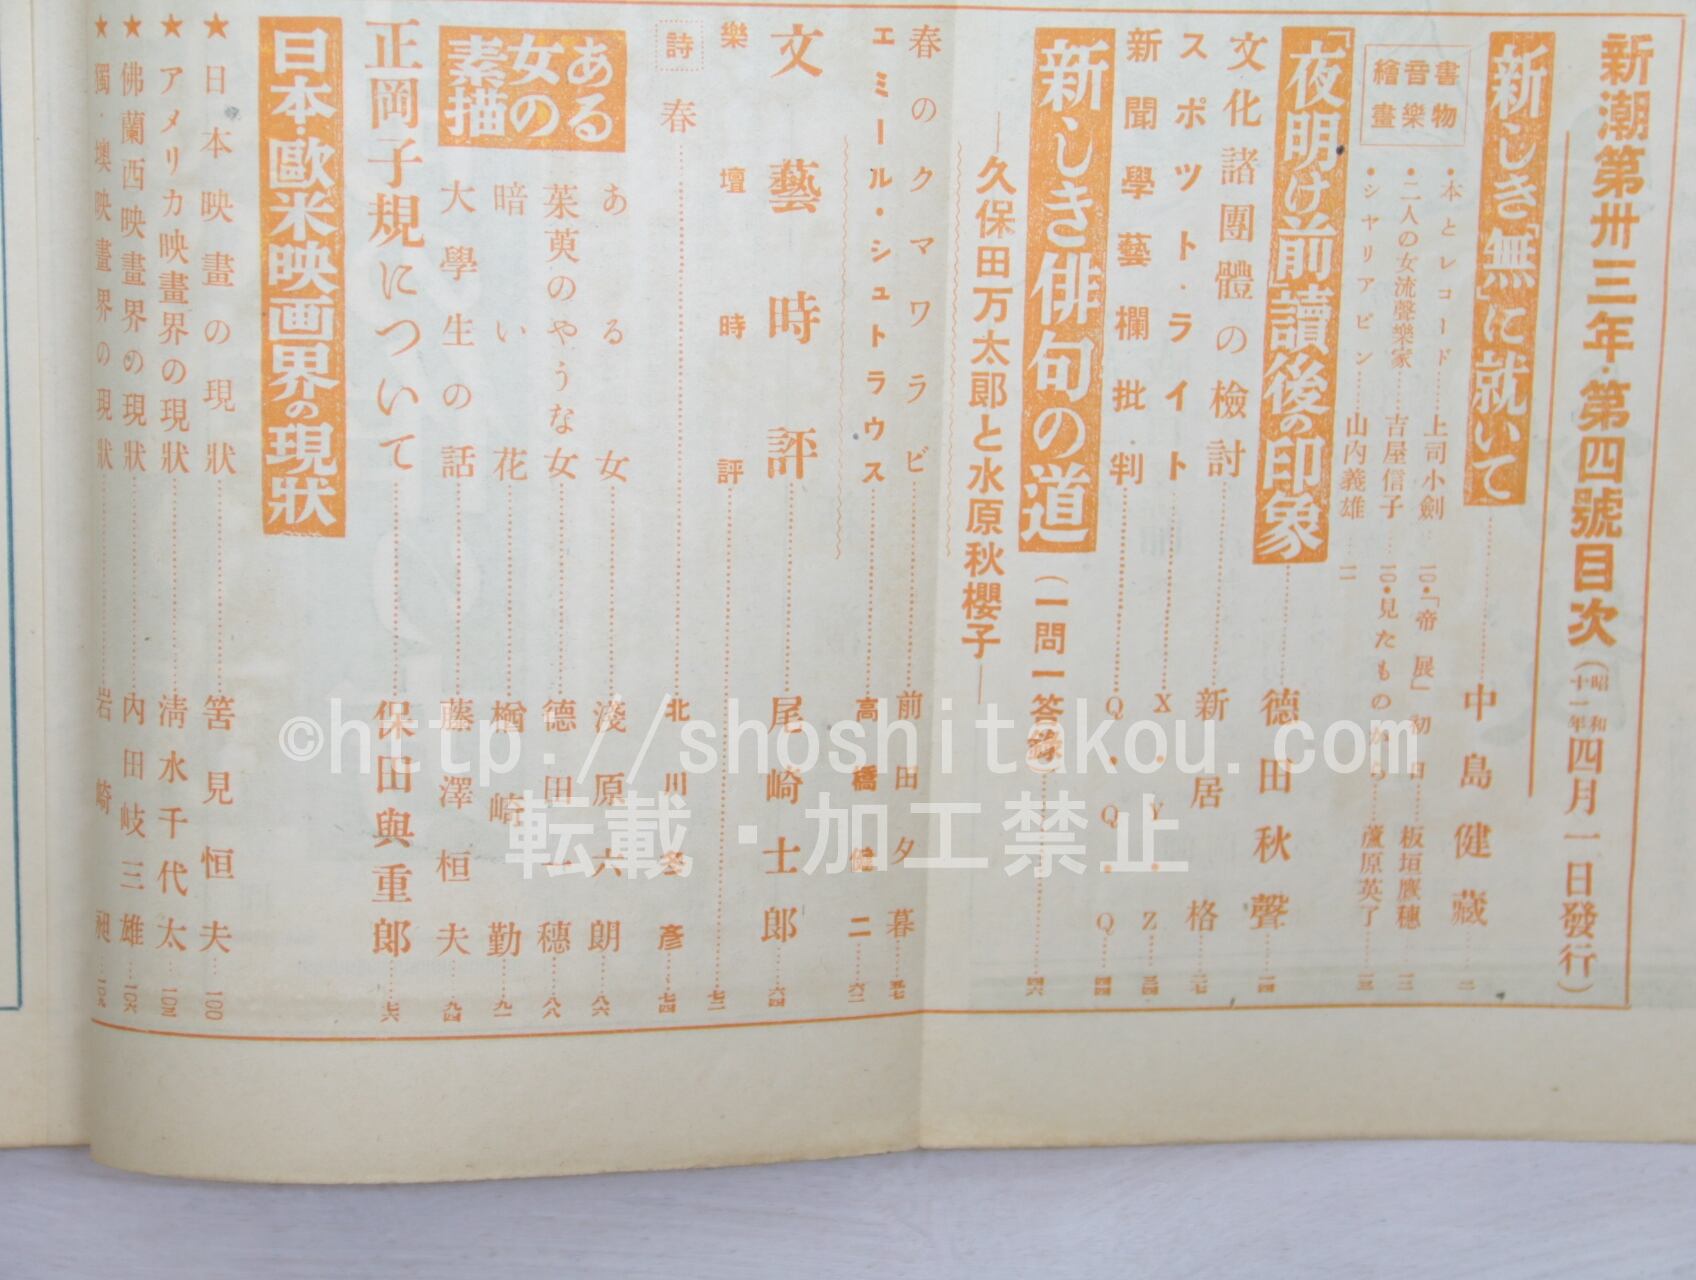 新潮第卅三年・第四號目次(昭和十一年四月一日發行)
新しき「無」に就いて……中島健藏……二
書物 音樂 繪畫
・本とレコード……上司小劍……一〇
・「帝展」初日……板垣鷹穗……一二
・二人の女流聲樂家……吉屋信子……一〇
・見たものから……蘆原英了……一三
・シヤリアピン……山内義雄……一一
「夜明け前」讀後の印象……德田秋聲……一四
文化諸團體の檢討……新居格……二七
スポツト・ライト……X・Y・Z……三四
新聞學藝欄批判……Q・Q・Q……四四
新しき俳句の道(一問一答錄)……四六
―久保田万太郎と水原秋櫻子―
春のクマワラビ……前田夕暮……五七
エミール・シュトラウス……高橋健二……六二
文藝時評……尾崎士郎……六四
樂壇時評……七二
詩 春……北川冬彦……七四
ある女の素描
ある女……淺原六朗……八六
茱萸のやうな女……德田一穗……八八
暗い花……楢崎勤……九一
大學生の話……藤澤桓夫……九四
正岡子規について……保田與重郎……七六
日本・歐米映画界の現狀
★日本映畫の現狀……筈見恒夫……一〇〇
★アメリカ映畫界の現狀……淸水千代太……一〇三
★佛蘭西映畫界の現狀……內田岐三雄……一〇六
★獨・墺映畫界の現狀……岩崎昶……一〇九
©http://shoshitakou.com
転載・加工禁止